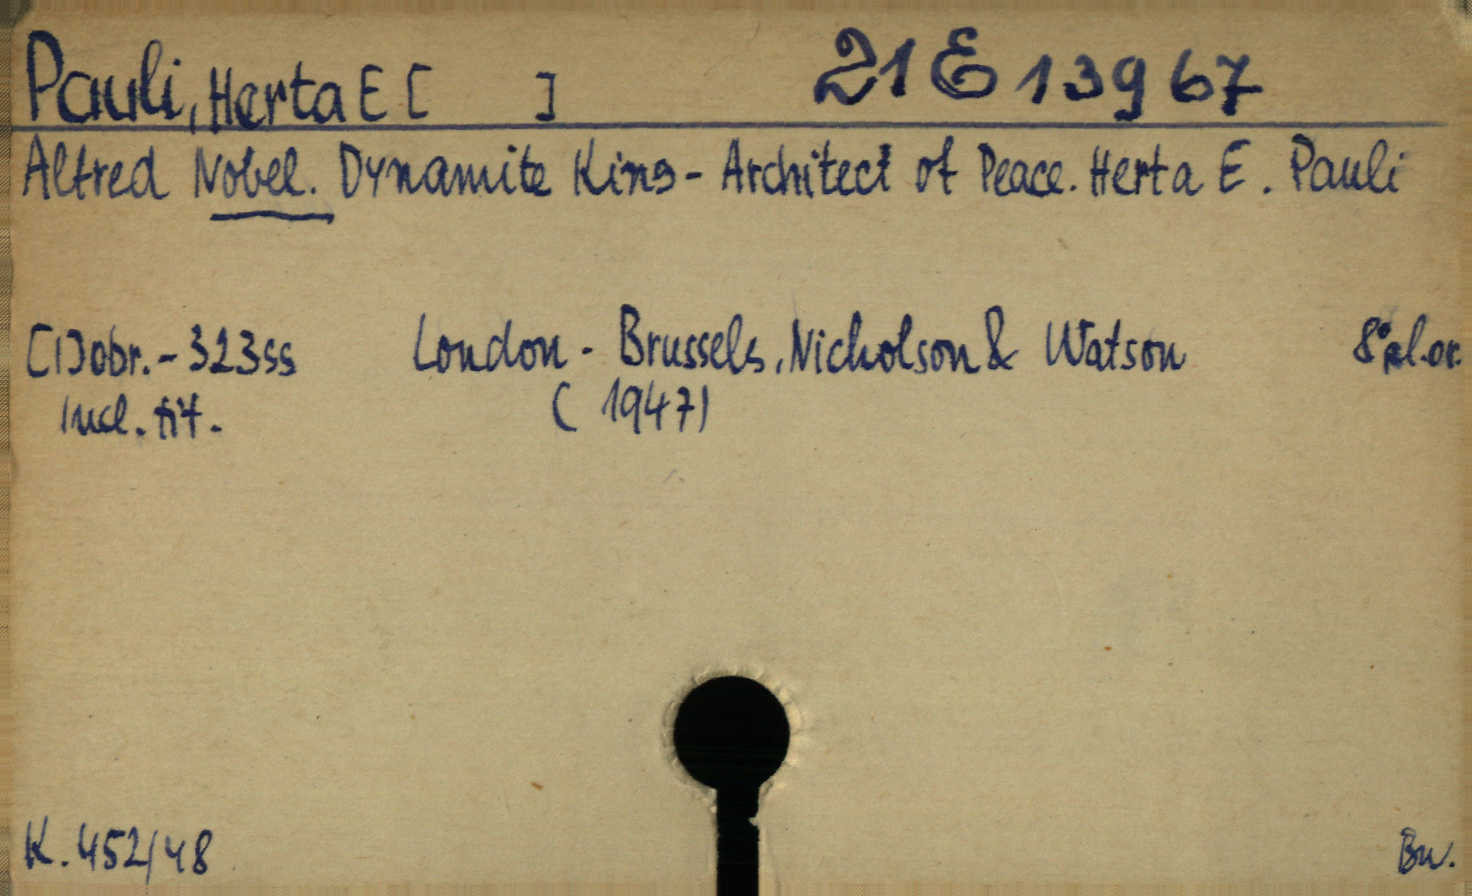 Pauli, Herta E [ ] 21 E 13967
Alfred Nobel. Dynamite King - Architect of Peace. Herta E. Pauli
[1] obr. - 323 ss London - Brussels, Nicholson & Watson 8° pl. or.
incl. tit. (1947)
K. 452/48 Bn.